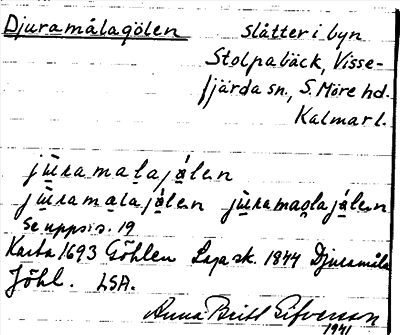 Djuramålagölen slåtter i byn
Stolpabäck, Visse-
fjärda sn., S. Möre hd.
Kalmar l.
jūramalajǿlen
jūramalajǿlen jūramaolajǿlen
Se upps. s. 19
Karta 1693 Göhlen Laga sk. 1844 Djuramåla
Jöhl. LSA.
Anna Britt Sifversson
1941